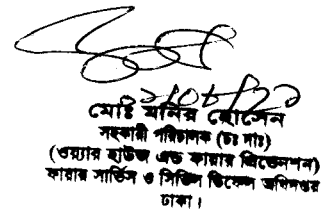 মোঃ মনির হোসেন
সহকারী পরিচালক (চঃ দাঃ)
(ওয়্যার হাউজ এন্ড ফায়ার প্রিভেনশন)
ফায়ার সার্ভিস ও সিভিল ডিফেন্স অধিদপ্তর
ঢাকা।